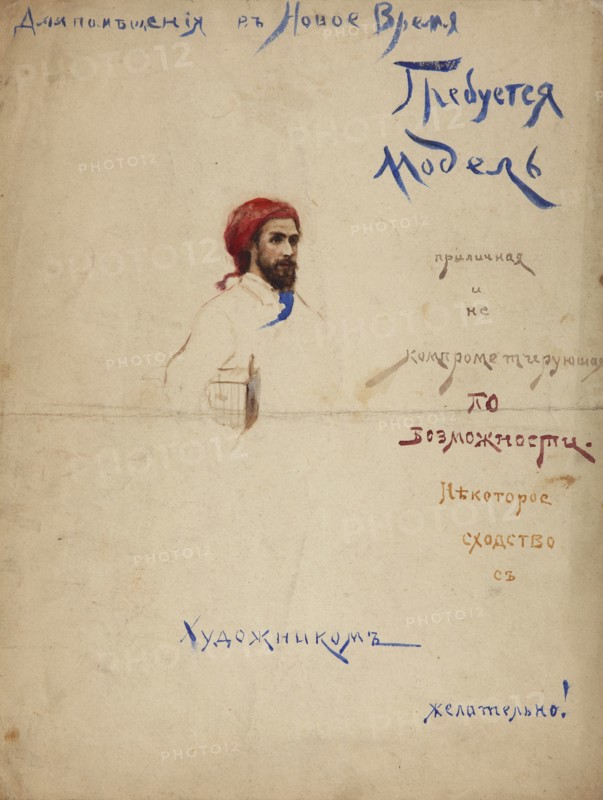 Для помѣщенія въ Новое Время
Требуется
Модель
приличная
и
не
компрометирующая
по
возможности.
Нѣкоторое
сходство
съ
Художникомъ
желательно!
PHOTO12